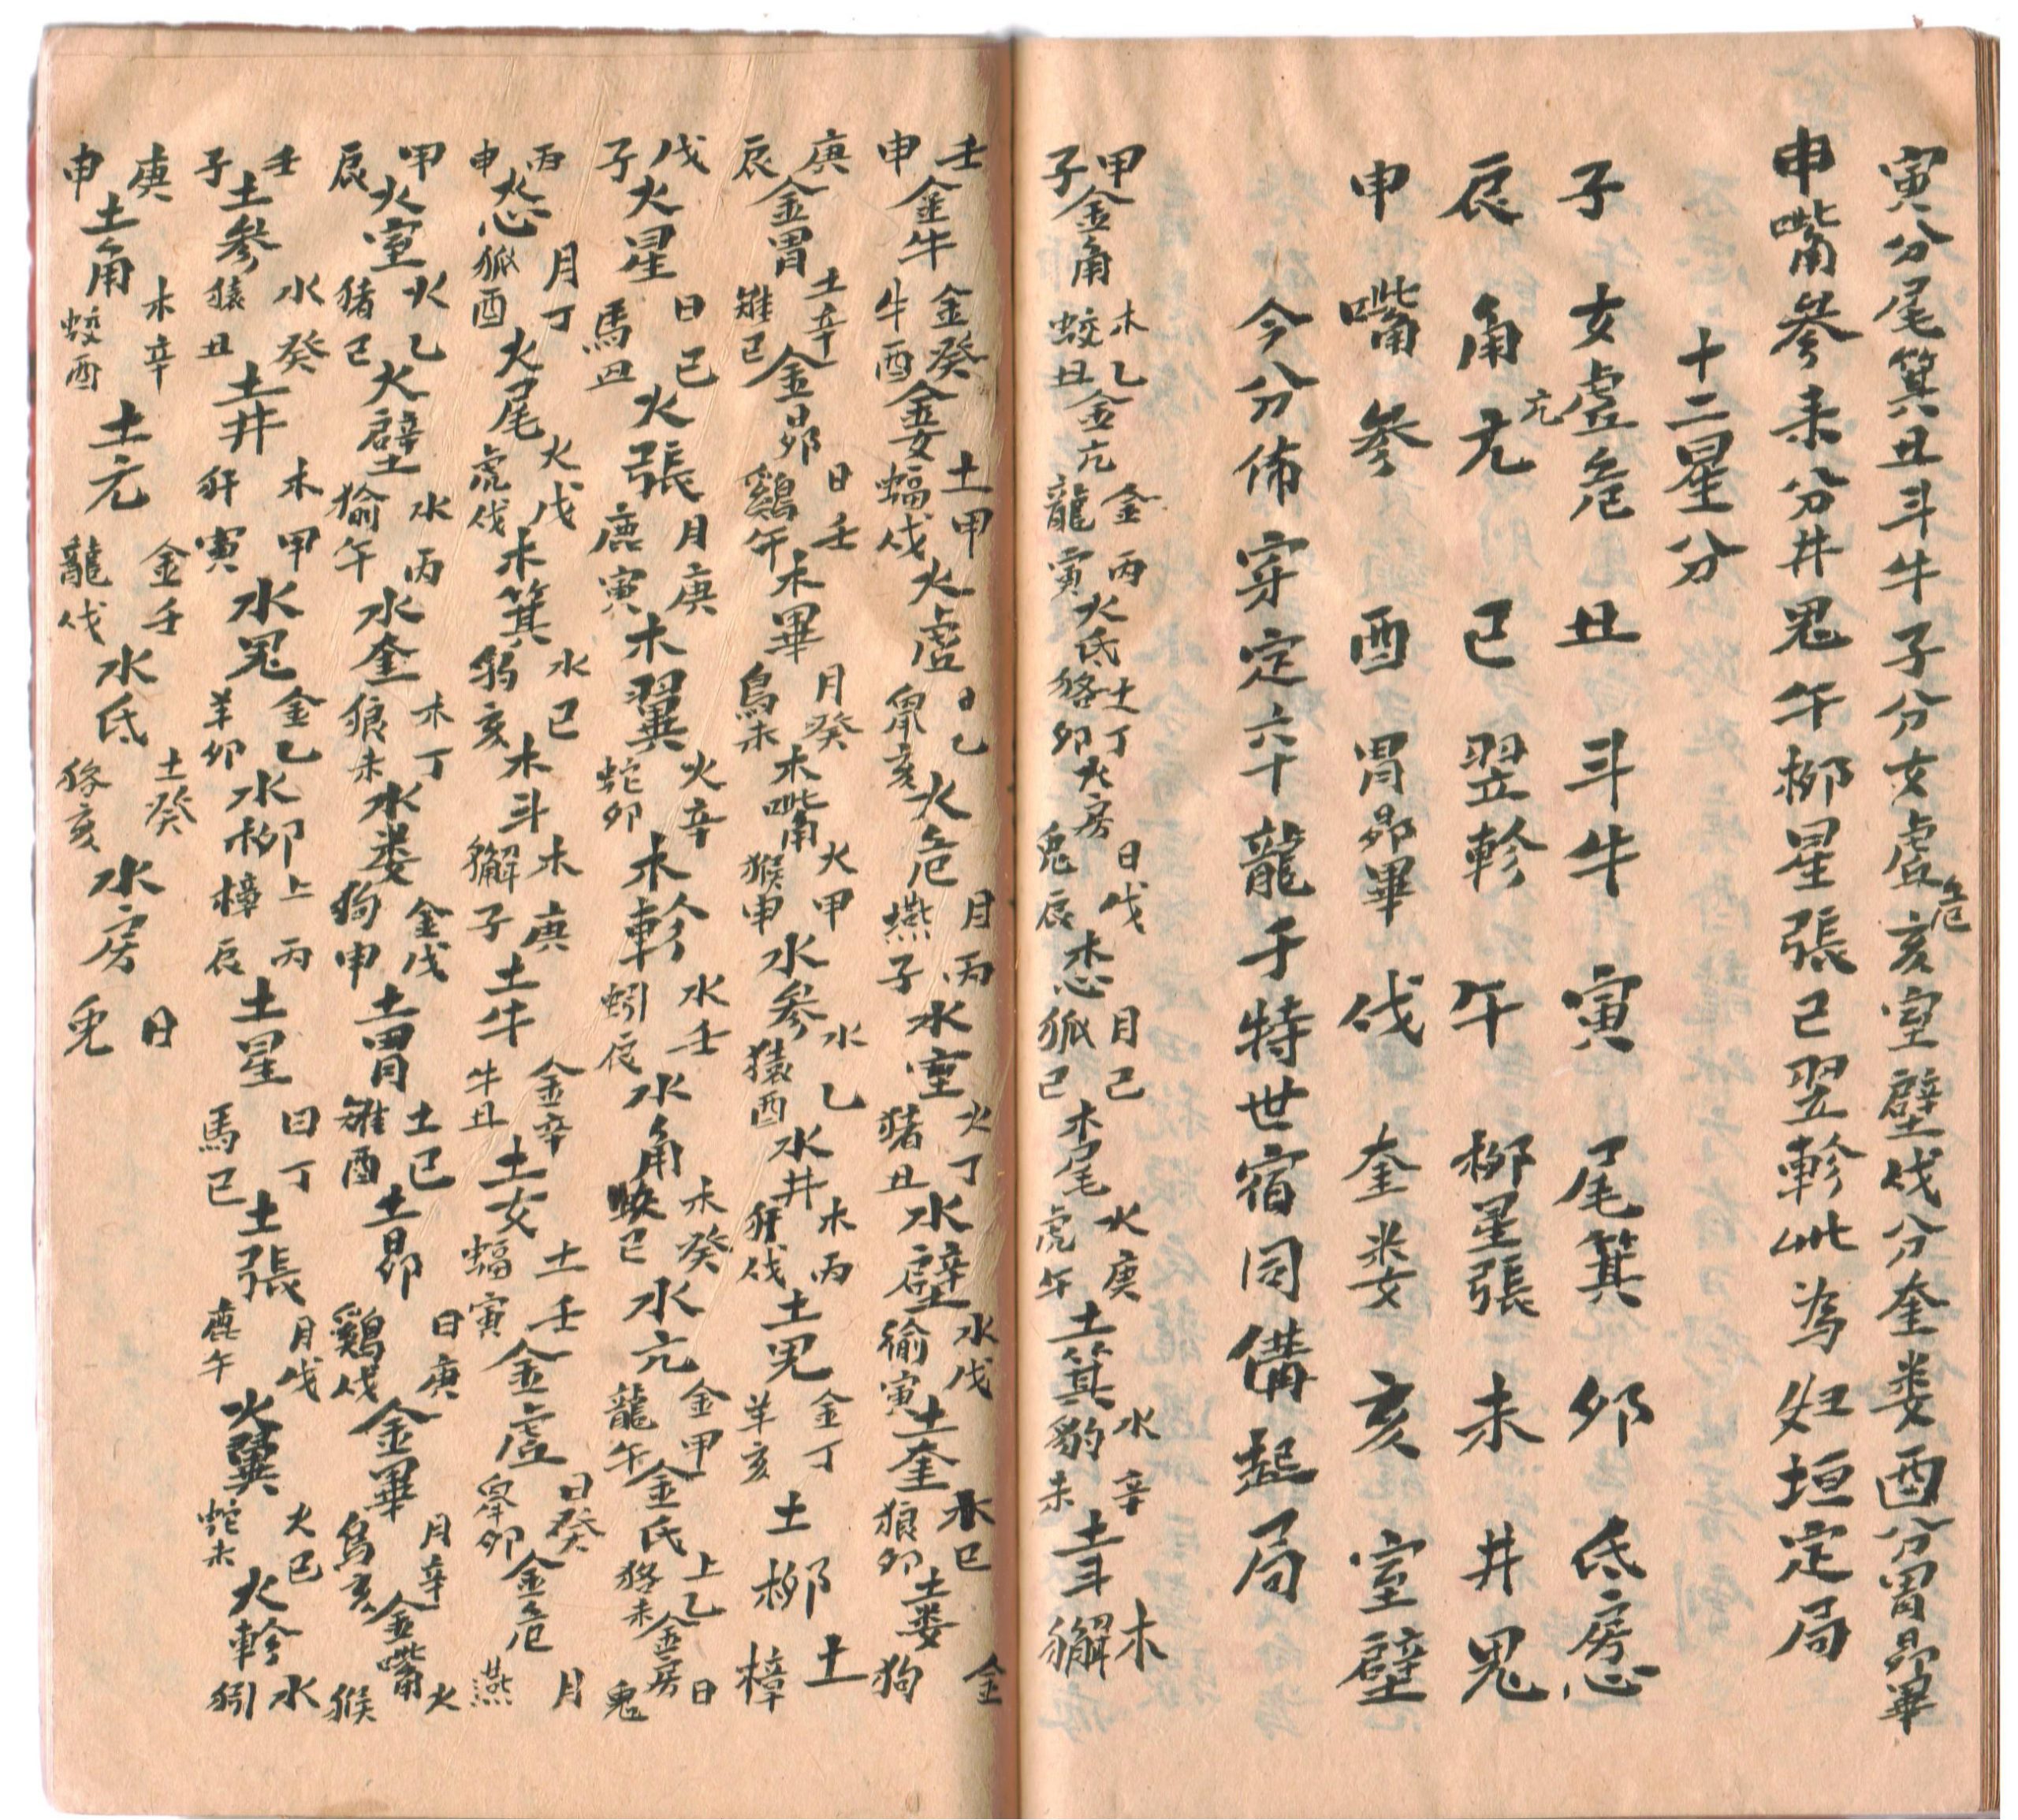 寅分尾箕丑斗牛子分女虛危亥室壁戌分奎娄酉分胃昴畢
申嘴參未分井鬼午栁星張巳翌軫此為归垣定局
十二星分
子 女虛危 丑 斗牛 寅 尾箕 卯 氐房心
辰 角亢亢 巳 翌軫 午 栁星張 未 井鬼
申 嘴參 酉 胃昴畢 戌 奎娄 亥 室壁
今分佈穿定六十龍于特世宿同備起局
甲子金角木蛟乙丑金亢金龍丙寅火氐土狢丁卯火房日兔戊辰木心月狐己巳木尾火虎庚午土箕水豹辛未土斗木獬
壬申金牛金牛癸酉金女土蝠甲戌火虛日鼠乙亥火危月燕丙子水室火猪丁丑水壁水㺄戊寅土奎木狼己卯土娄金狗
庚辰金胃土雉辛巳金昴日鷄壬午木畢月烏癸未木嘴火猴甲申水參水猿乙酉水井木犴丙戌土鬼金羊丁亥土栁土樟
戊子火星日馬己丑火張月鹿庚寅木翼火蛇辛卯木軫水蚓壬辰水角木蛟癸巳水亢金龍甲午金氐土狢乙未金房日兔
丙申火心月狐丁酉火尾火虎戊戌木箕水豹己亥木斗木獬庚子土牛金牛辛丑土女土蝠壬寅金虛日鼠癸卯金危月燕
甲辰火室火猪乙巳火壁水㺄丙午水奎木狼丁未水娄金狗戊申土胃土雉己酉土昴日鷄庚戌金畢月烏辛亥金嘴火猴
壬子土參水猿癸丑土井木犴甲寅水鬼金羊乙卯水栁土樟丙辰土星日馬丁巳土張月鹿戊午火翼火蛇己未火軫水蚓
庚申土角木蛟辛酉土亢金龍壬戌水氐土狢癸亥水房日兔